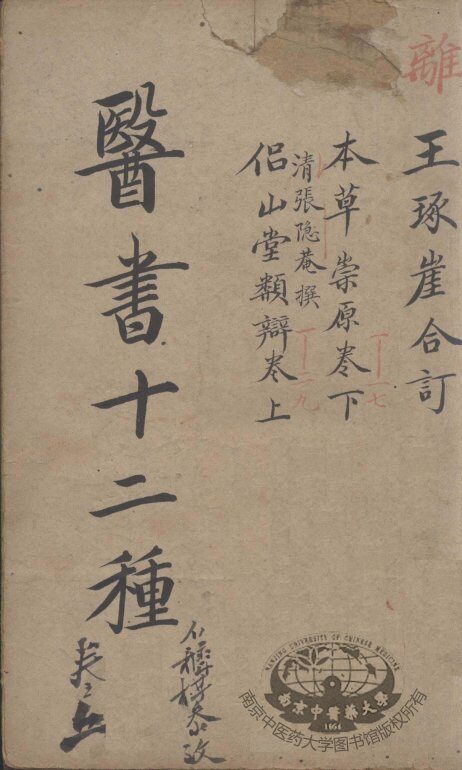 離
王琢崖合訂
本草崇原卷下
丨—二七
清張隐菴撰
侶山堂類辯卷上
丨—二九
醫書十二種
NANJING UNIVERSITY OF CHINESE MEDICINE
南京中醫藥大學
1954
南京中医药大学图书馆版权所有